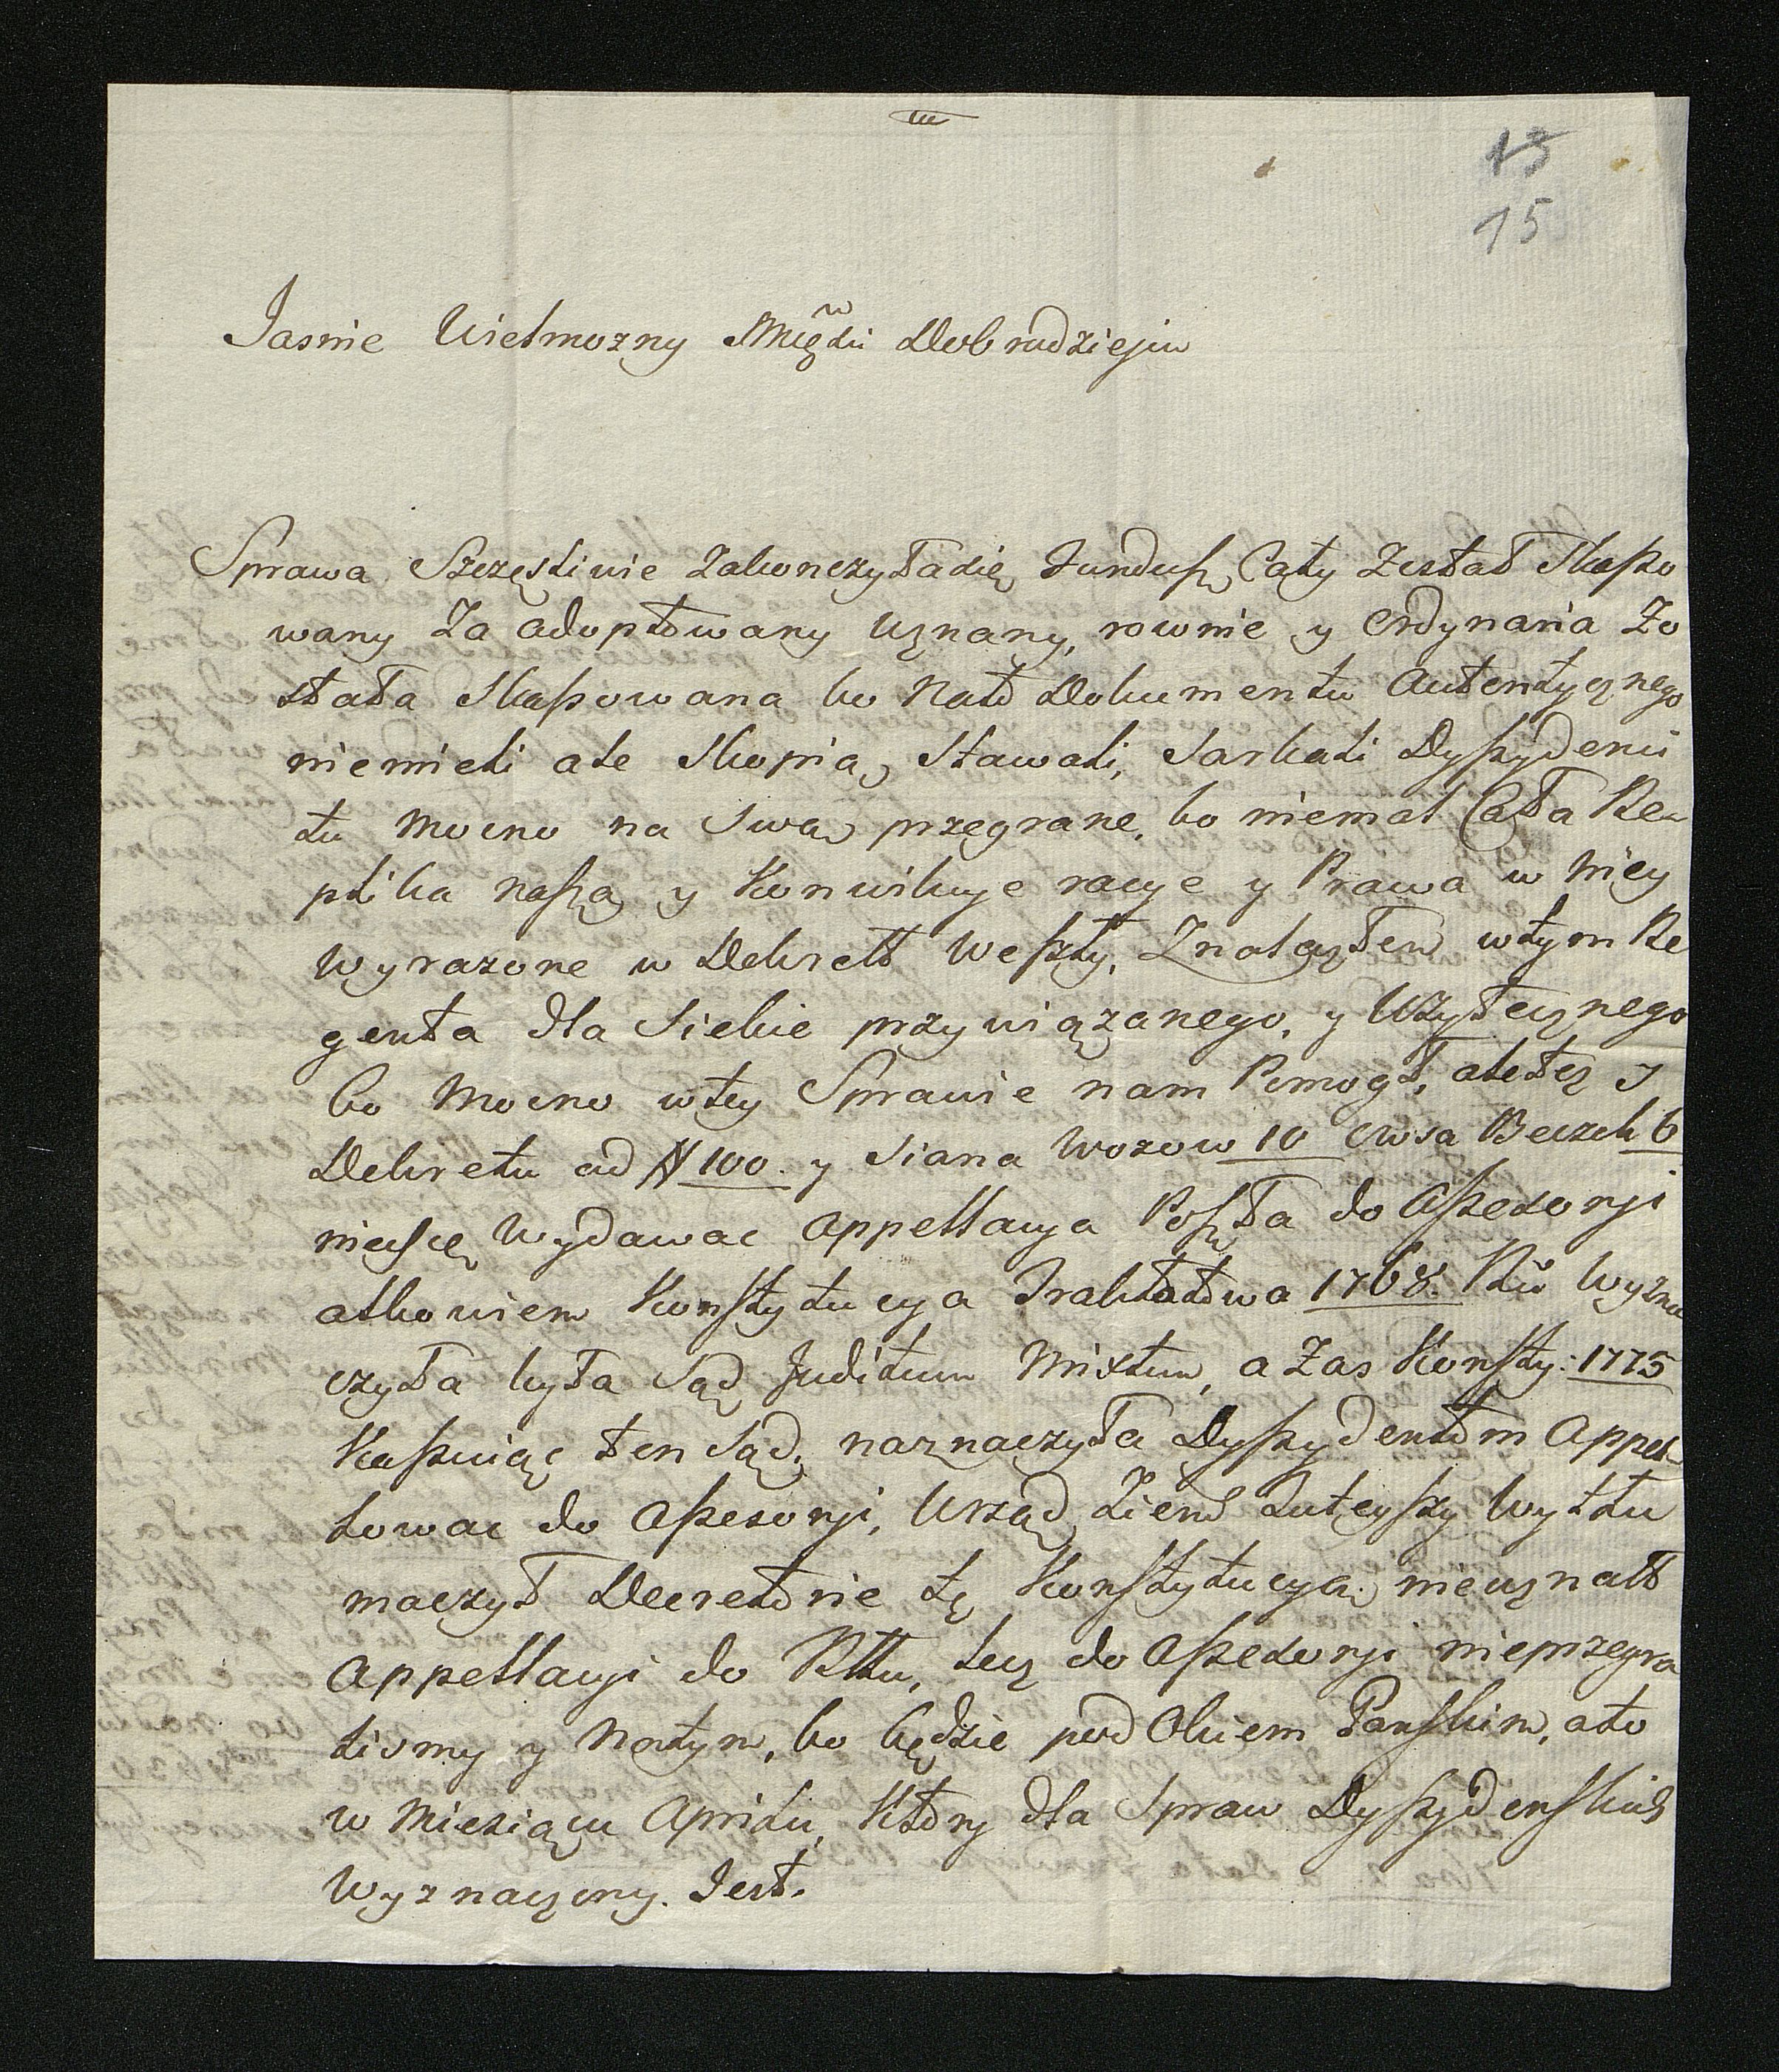 13
15
Jasnie Wielmozny Mści Dobrodzieju
Sprawa Szczęsliwie zakonczyła się Fundusz Cały Został Skaso
wany Za adoptowany uznany, rownie y Ordynaria Zo
stała Skasowana bo Nato Dokumentu Autentycznego
niemieli ale Skopią Stawali, Sarkali Dyssydenci
tu mocno na Swą przegrane, bo niemal Cała Re
plika nasza y Konwikuje racye y Prawa w Niey
Wyrazone w Dekrett Weszły, Znalazłem wtym Re
genta dla Siebie przywiązanego, y Uzytecznego
bo Mocno wtey Sprawie nam Pomogł, aletez I
Dekretu ad # 100. y Siana Wozow 10 Owsa Beczek 6
Wydawac Appellacya Poszła do Assessoryi
albowiem Konstytucya Traktatowa 1768. Ru Wyzna
czyła była Sąd Juditum Mixtum, a Zas Konsty: 1775
Kassuiąc ten Sąd, naznaczyła Dyssydentom Appel
lowac do Assesoryi, Urząd Ziem Tuteyszy Wytłu
maczył Decretownie tę Konstytucyą nieuznatt
Appellacyi do Rttu, lecz do Assessoryi nieprzegra
lismy y Natym, bo będzie pod Okiem Panskim, ato
w Miesiącu Aprilu, Ktory dla Spraw Dyssydenskich
Wyznaczony Jest.